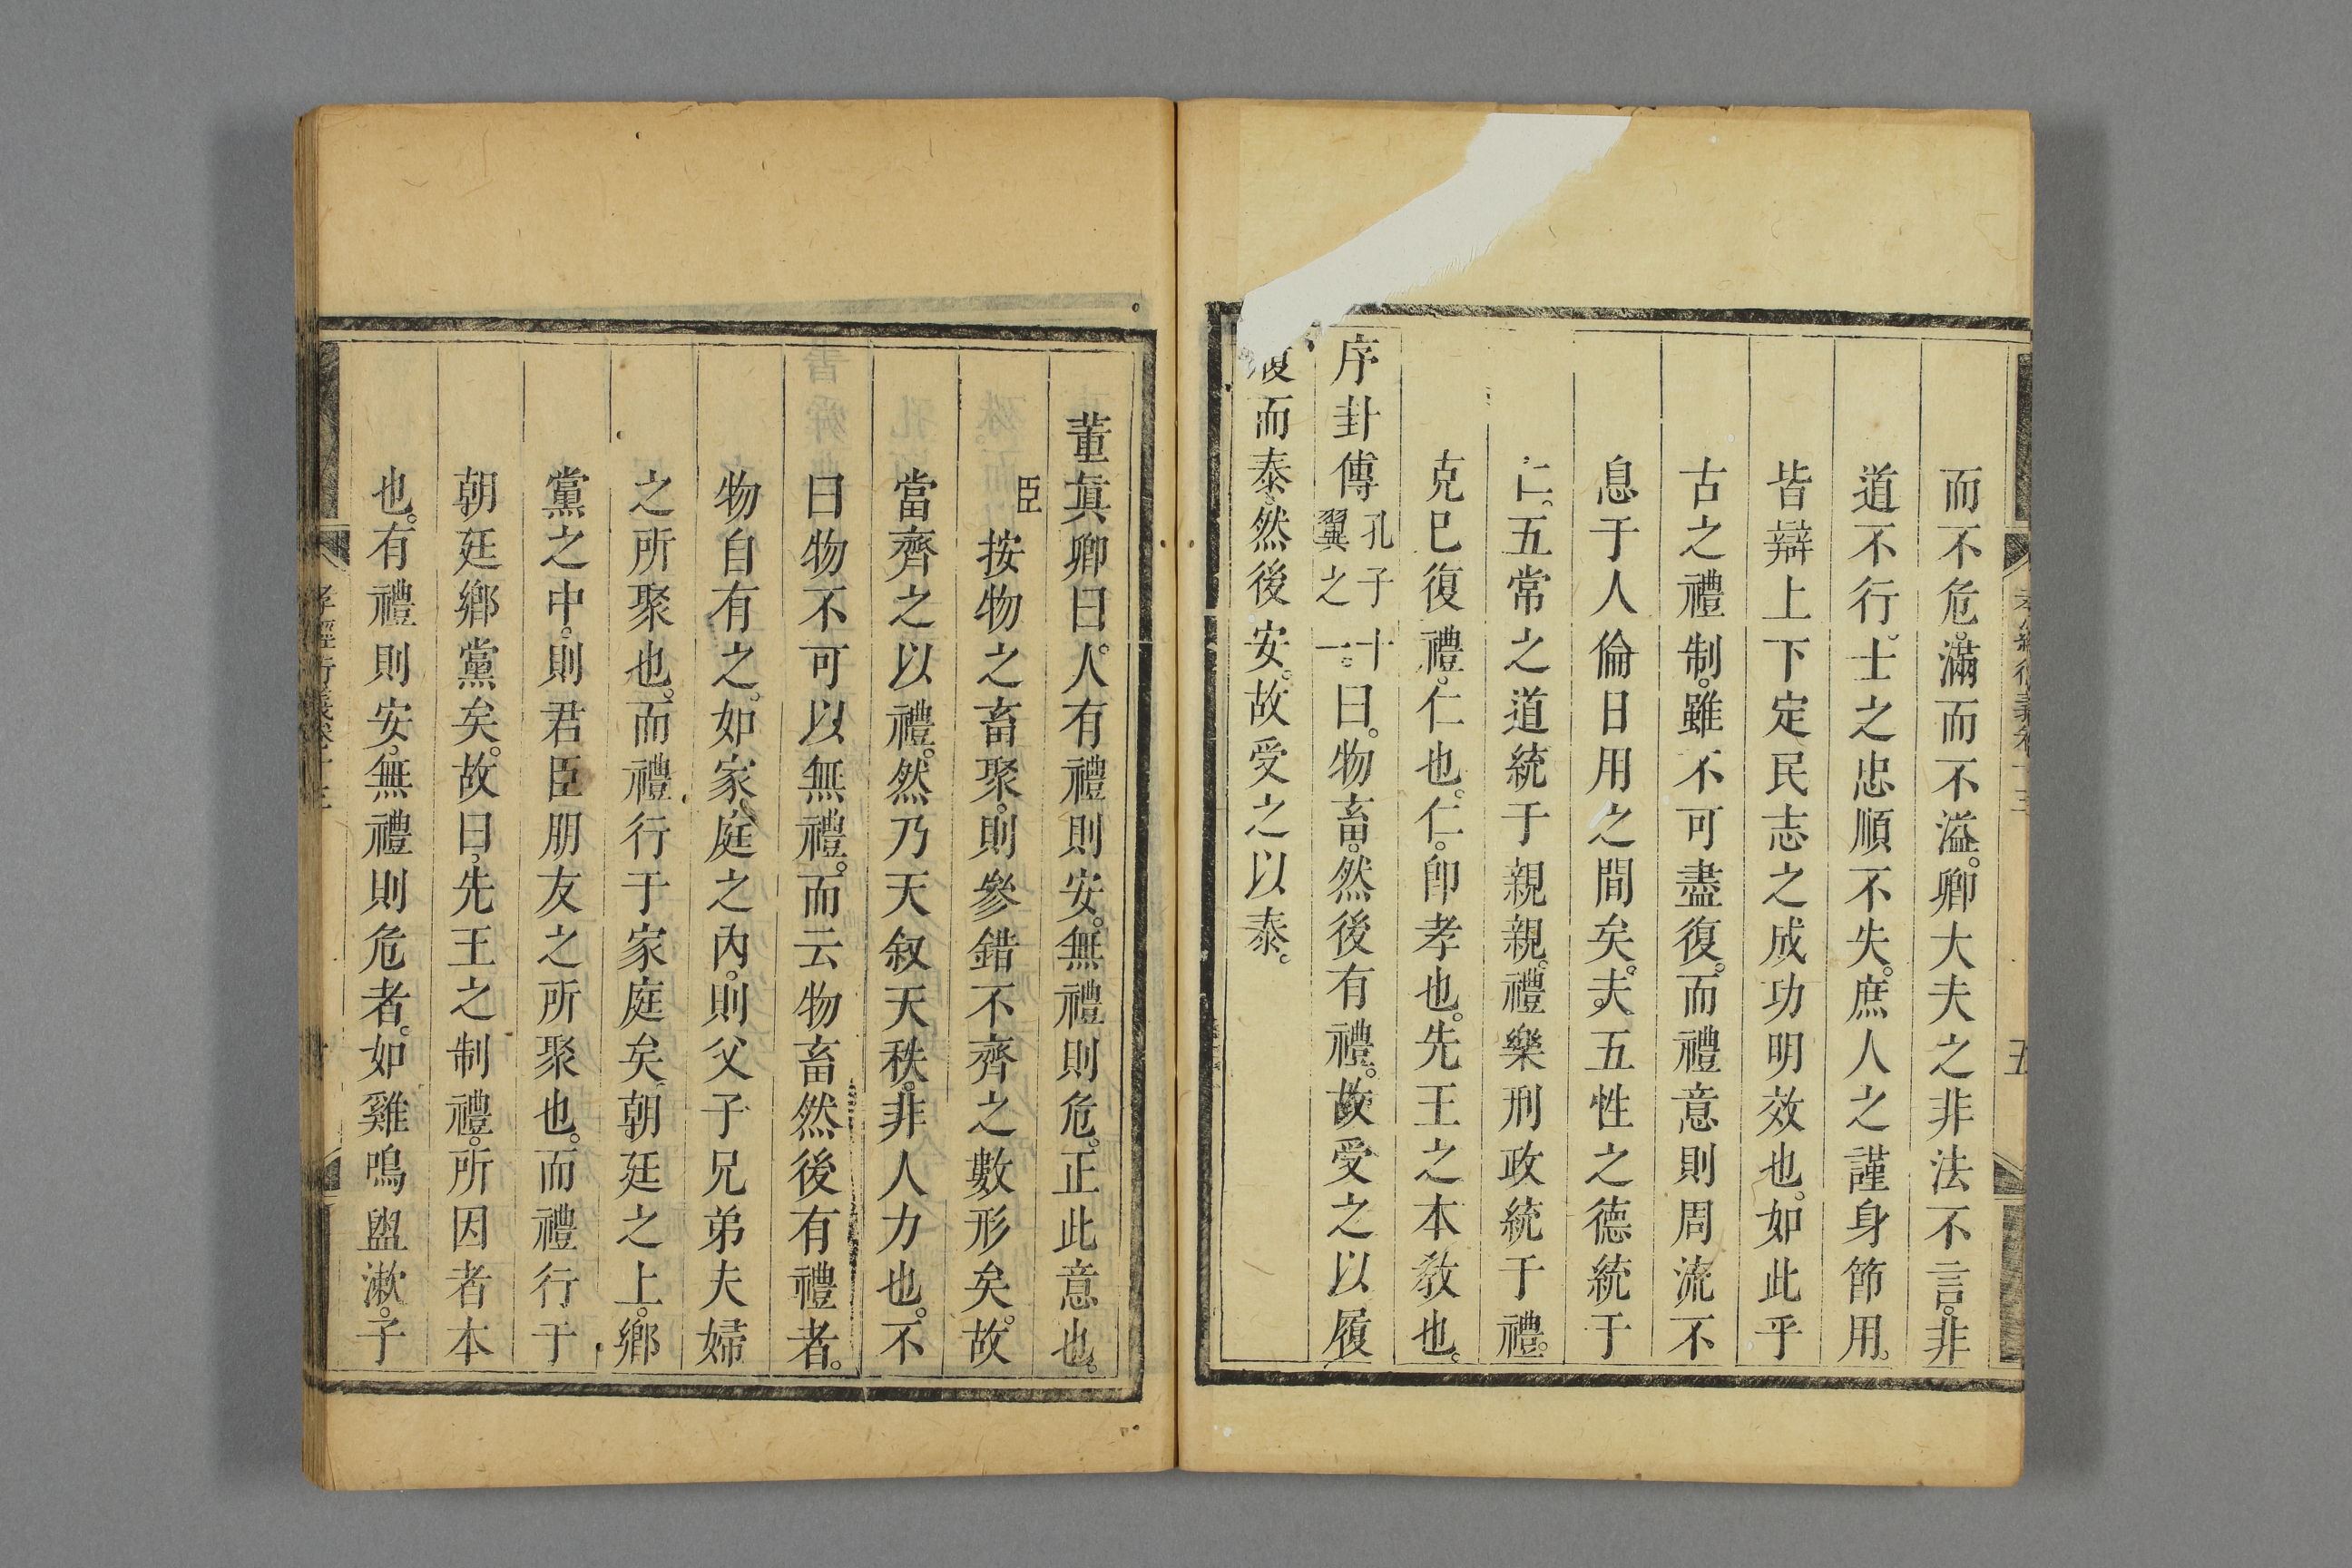 而不危。滿而不溢。卿大夫之非法不言。非
道不行。士之忠順不失。庶人之謹身節用。
皆辯上下定民志之成功明效也。如此乎
古之禮制。雖不可盡復。而禮意則周流不
息于人倫日用之間矣。夫五性之德統于
仁。五常之道統于親親。禮樂刑政統于禮。
克已復禮。仁也。仁。卽孝也。先王之本敎也。
序卦傳孔子十翼之一。曰。物畜。然後有禮。故受之以履
履而泰。然後安。故受之以泰。
董眞卿曰。人有禮則安。無禮則危。正此意也。
臣按物之畜聚。則參錯不齊之數形矣。故
當齊之以禮。然乃天叙天秩。非人力也。不
曰物不可以無禮。而云物畜然後有禮者。
物自有之。如家庭之內。則父子兄弟夫婦
之所聚也。而禮行于家庭矣。朝廷之上。鄉
黨之中。則君臣朋友之所聚也。而禮行于
朝廷鄉黨矣。故曰。先王之制禮。所因者本
也。有禮則安。無禮則危者。如雞鳴盥漱。子
孝經衍義卷十三
五